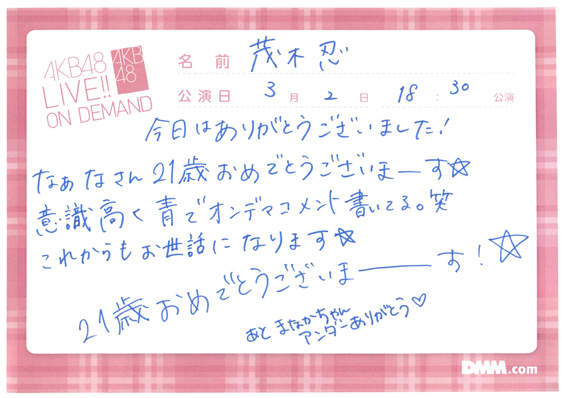 AKB48
LIVE!!
ON DEMAND
AKB
48
名前 茂木忍
公演日 3月2日 18:30 公演
今日はありがとうございました!
なぁなさん21歳おめでとうございまーす☆
意識高く青でオンデマコメント書いてる。笑
これからもお世話になります☆
21歳おめでとうございまーーす!☆
あと まなかちゃん
アンダーありがとう♡
DMM.com